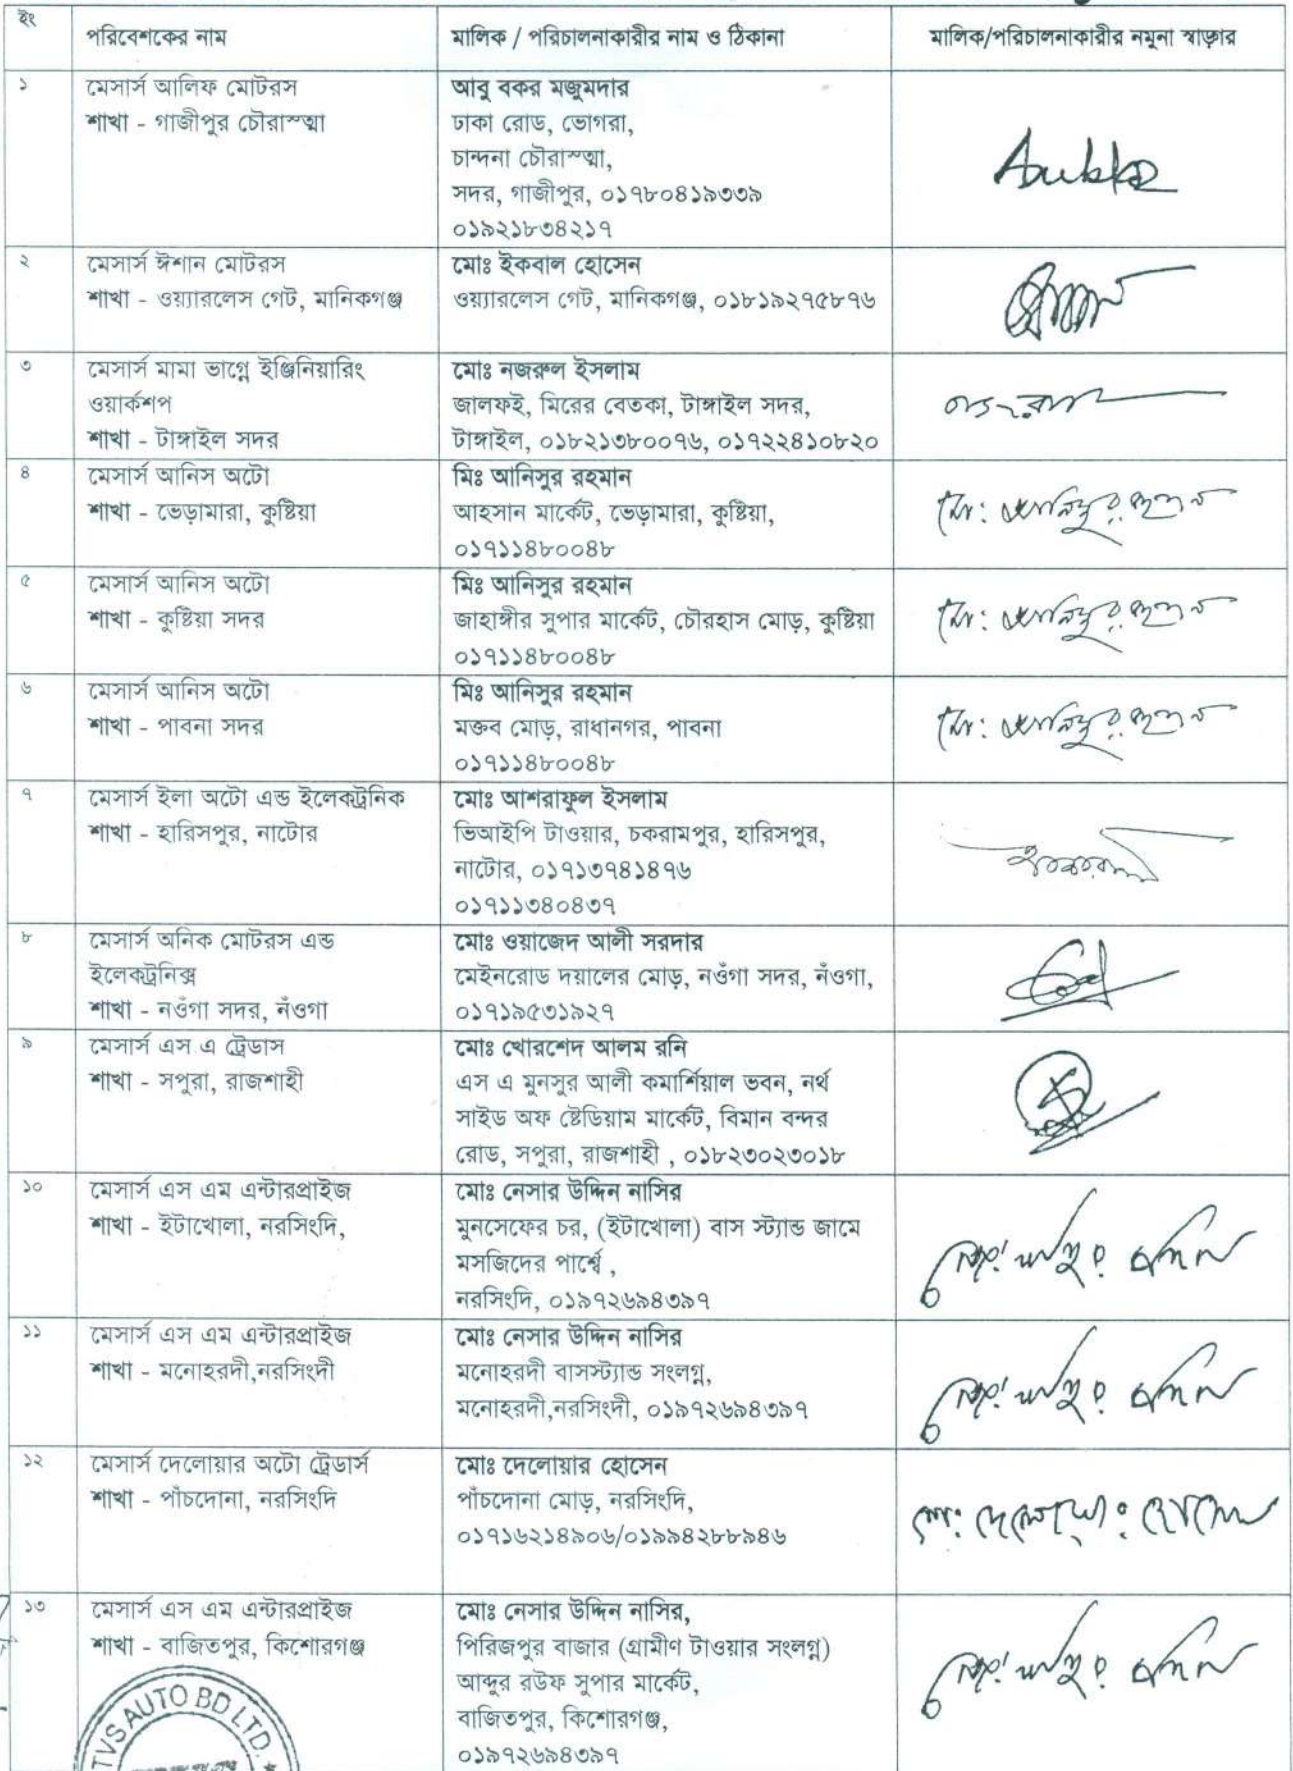 ইং
পরিবেশকের নাম
মালিক / পরিচালনাকারীর নাম ও ঠিকানা
মালিক/পরিচালনাকারীর নমুনা স্বাক্ষর
১
মেসার্স আলিফ মোটরস
শাখা - গাজীপুর চৌরাস্তা
আবু বকর মজুমদার
ঢাকা রোড, ভোগরা,
চান্দনা চৌরাস্তা,
সদর, গাজীপুর, ০১৭৮০৪১৯৩৩৯
০১৯২১৮৩৪২১৭
২
মেসার্স ঈশান মোটরস
শাখা - ওয়্যারলেস গেট, মানিকগঞ্জ
মোঃ ইকবাল হোসেন
ওয়্যারলেস গেট, মানিকগঞ্জ, ০১৮১৯২৭৫৮৭৬
৩
মেসার্স মামা ভাগ্নে ইঞ্জিনিয়ারিং
ওয়ার্কশপ
শাখা - টাঙ্গাইল সদর
মোঃ নজরুল ইসলাম
জালফই, মিরের বেতকা, টাঙ্গাইল সদর,
টাঙ্গাইল, ০১৮২১৩৮০০৭৬, ০১৭২২৪১০৮২০
৪
মেসার্স আনিস অটো
শাখা - ভেড়ামারা, কুষ্টিয়া
মিঃ আনিসুর রহমান
আহসান মার্কেট, ভেড়ামারা, কুষ্টিয়া,
০১৭১১৪৮০০৪৮
মো: আনিসুর রহমান
৫
মেসার্স আনিস অটো
শাখা - কুষ্টিয়া সদর
মিঃ আনিসুর রহমান
জাহাঙ্গীর সুপার মার্কেট, চৌরহাস মোড়, কুষ্টিয়া
০১৭১১৪৮০০৪৮
মো: আনিসুর রহমান
৬
মেসার্স আনিস অটো
শাখা - পাবনা সদর
মিঃ আনিসুর রহমান
মক্তব মোড়, রাধানগর, পাবনা
০১৭১১৪৮০০৪৮
মো: আনিসুর রহমান
৭
মেসার্স ইলা অটো এন্ড ইলেকট্রনিক
শাখা - হারিসপুর, নাটোর
মোঃ আশরাফুল ইসলাম
ভিআইপি টাওয়ার, চকরামপুর, হারিসপুর,
নাটোর, ০১৭১৩৭৪১৪৭৬
০১৭১১৩৪০৪৩৭
৮
মেসার্স অনিক মোটরস এন্ড
ইলেকট্রনিক্স
শাখা - নওঁগা সদর, নঁওগা
মোঃ ওয়াজেদ আলী সরদার
মেইনরোড দয়ালের মোড়, নওঁগা সদর, নঁওগা,
০১৭১৯৫৩১৯২৭
৯
মেসার্স এস এ ট্রেডাস
শাখা - সপুরা, রাজশাহী
মোঃ খোরশেদ আলম রনি
এস এ মুনসুর আলী কমার্শিয়াল ভবন, নর্থ
সাইড অফ ষ্টেডিয়াম মার্কেট, বিমান বন্দর
রোড, সপুরা, রাজশাহী , ০১৮২৩০২৩০১৮
১০
মেসার্স এস এম এন্টারপ্রাইজ
শাখা - ইটাখোলা, নরসিংদি,
মোঃ নেসার উদ্দিন নাসির
মুনসেফের চর, (ইটাখোলা) বাস স্ট্যান্ড জামে
মসজিদের পার্শ্বে ,
নরসিংদি, ০১৯৭২৬৯৪৩৯৭
১১
মেসার্স এস এম এন্টারপ্রাইজ
শাখা - মনোহরদী,নরসিংদী
মোঃ নেসার উদ্দিন নাসির
মনোহরদী বাসস্ট্যান্ড সংলগ্ন,
মনোহরদী,নরসিংদী, ০১৯৭২৬৯৪৩৯৭
১২
মেসার্স দেলোয়ার অটো ট্রেডার্স
শাখা - পাঁচদোনা, নরসিংদি
মোঃ দেলোয়ার হোসেন
পাঁচদোনা মোড়, নরসিংদি,
০১৭১৬২১৪৯০৬/০১৯৯৪২৮৮৯৪৬
মো: দেলোয়ার হোসেন
১৩
মেসার্স এস এম এন্টারপ্রাইজ
শাখা - বাজিতপুর, কিশোরগঞ্জ
মোঃ নেসার উদ্দিন নাসির,
পিরিজপুর বাজার (গ্রামীণ টাওয়ার সংলগ্ন)
আব্দুর রউফ সুপার মার্কেট,
বাজিতপুর, কিশোরগঞ্জ,
০১৯৭২৬৯৪৩৯৭
TVS AUTO BD LTD.